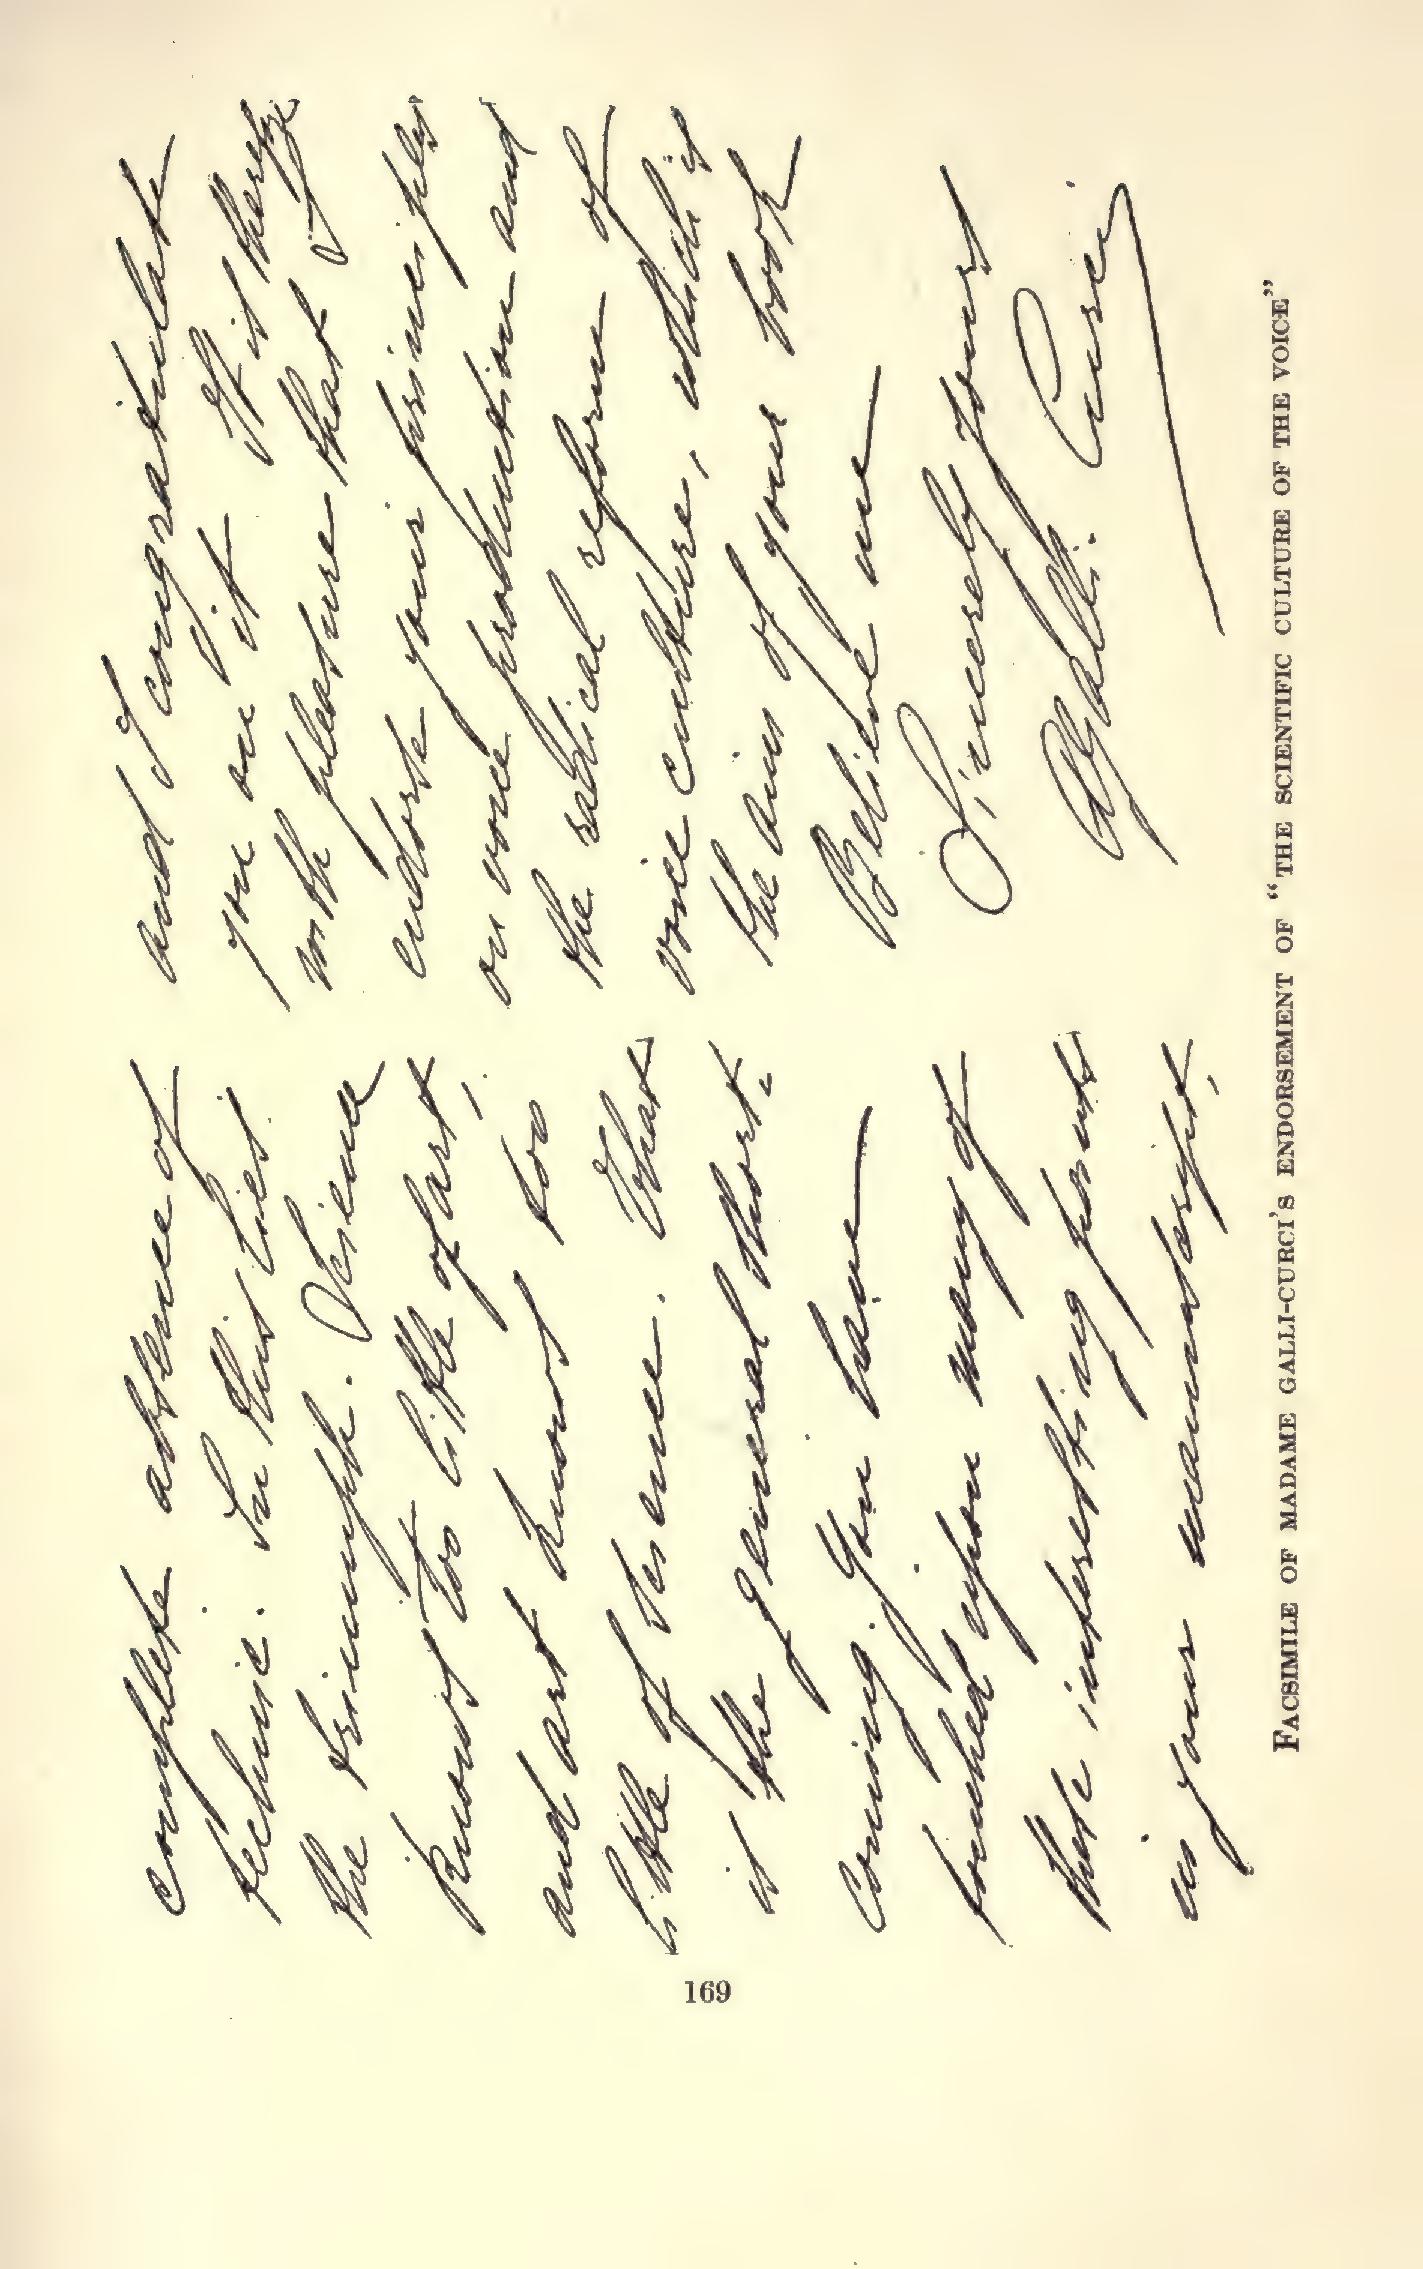 complete absence of
technic. In this lies
the triumph. Science
knows too little of art,
and art knows too
little of science. That
is the general short-
coming. You have
touched upon many of
these interesting points
in your manuscript,
and I congratulate
you on it. It is therefore
with pleasure that I
endorse your principles
on voice production and
the radical reform of
voice culture, which is
the aim of your book
Believe me
Sincerely yours
AGalli-Curci
FACSIMILE OF MADAME GALLI-CURCI'S ENDORSEMENT OF "THE SCIENTIFIC CULTURE OF THE VOICE"
169